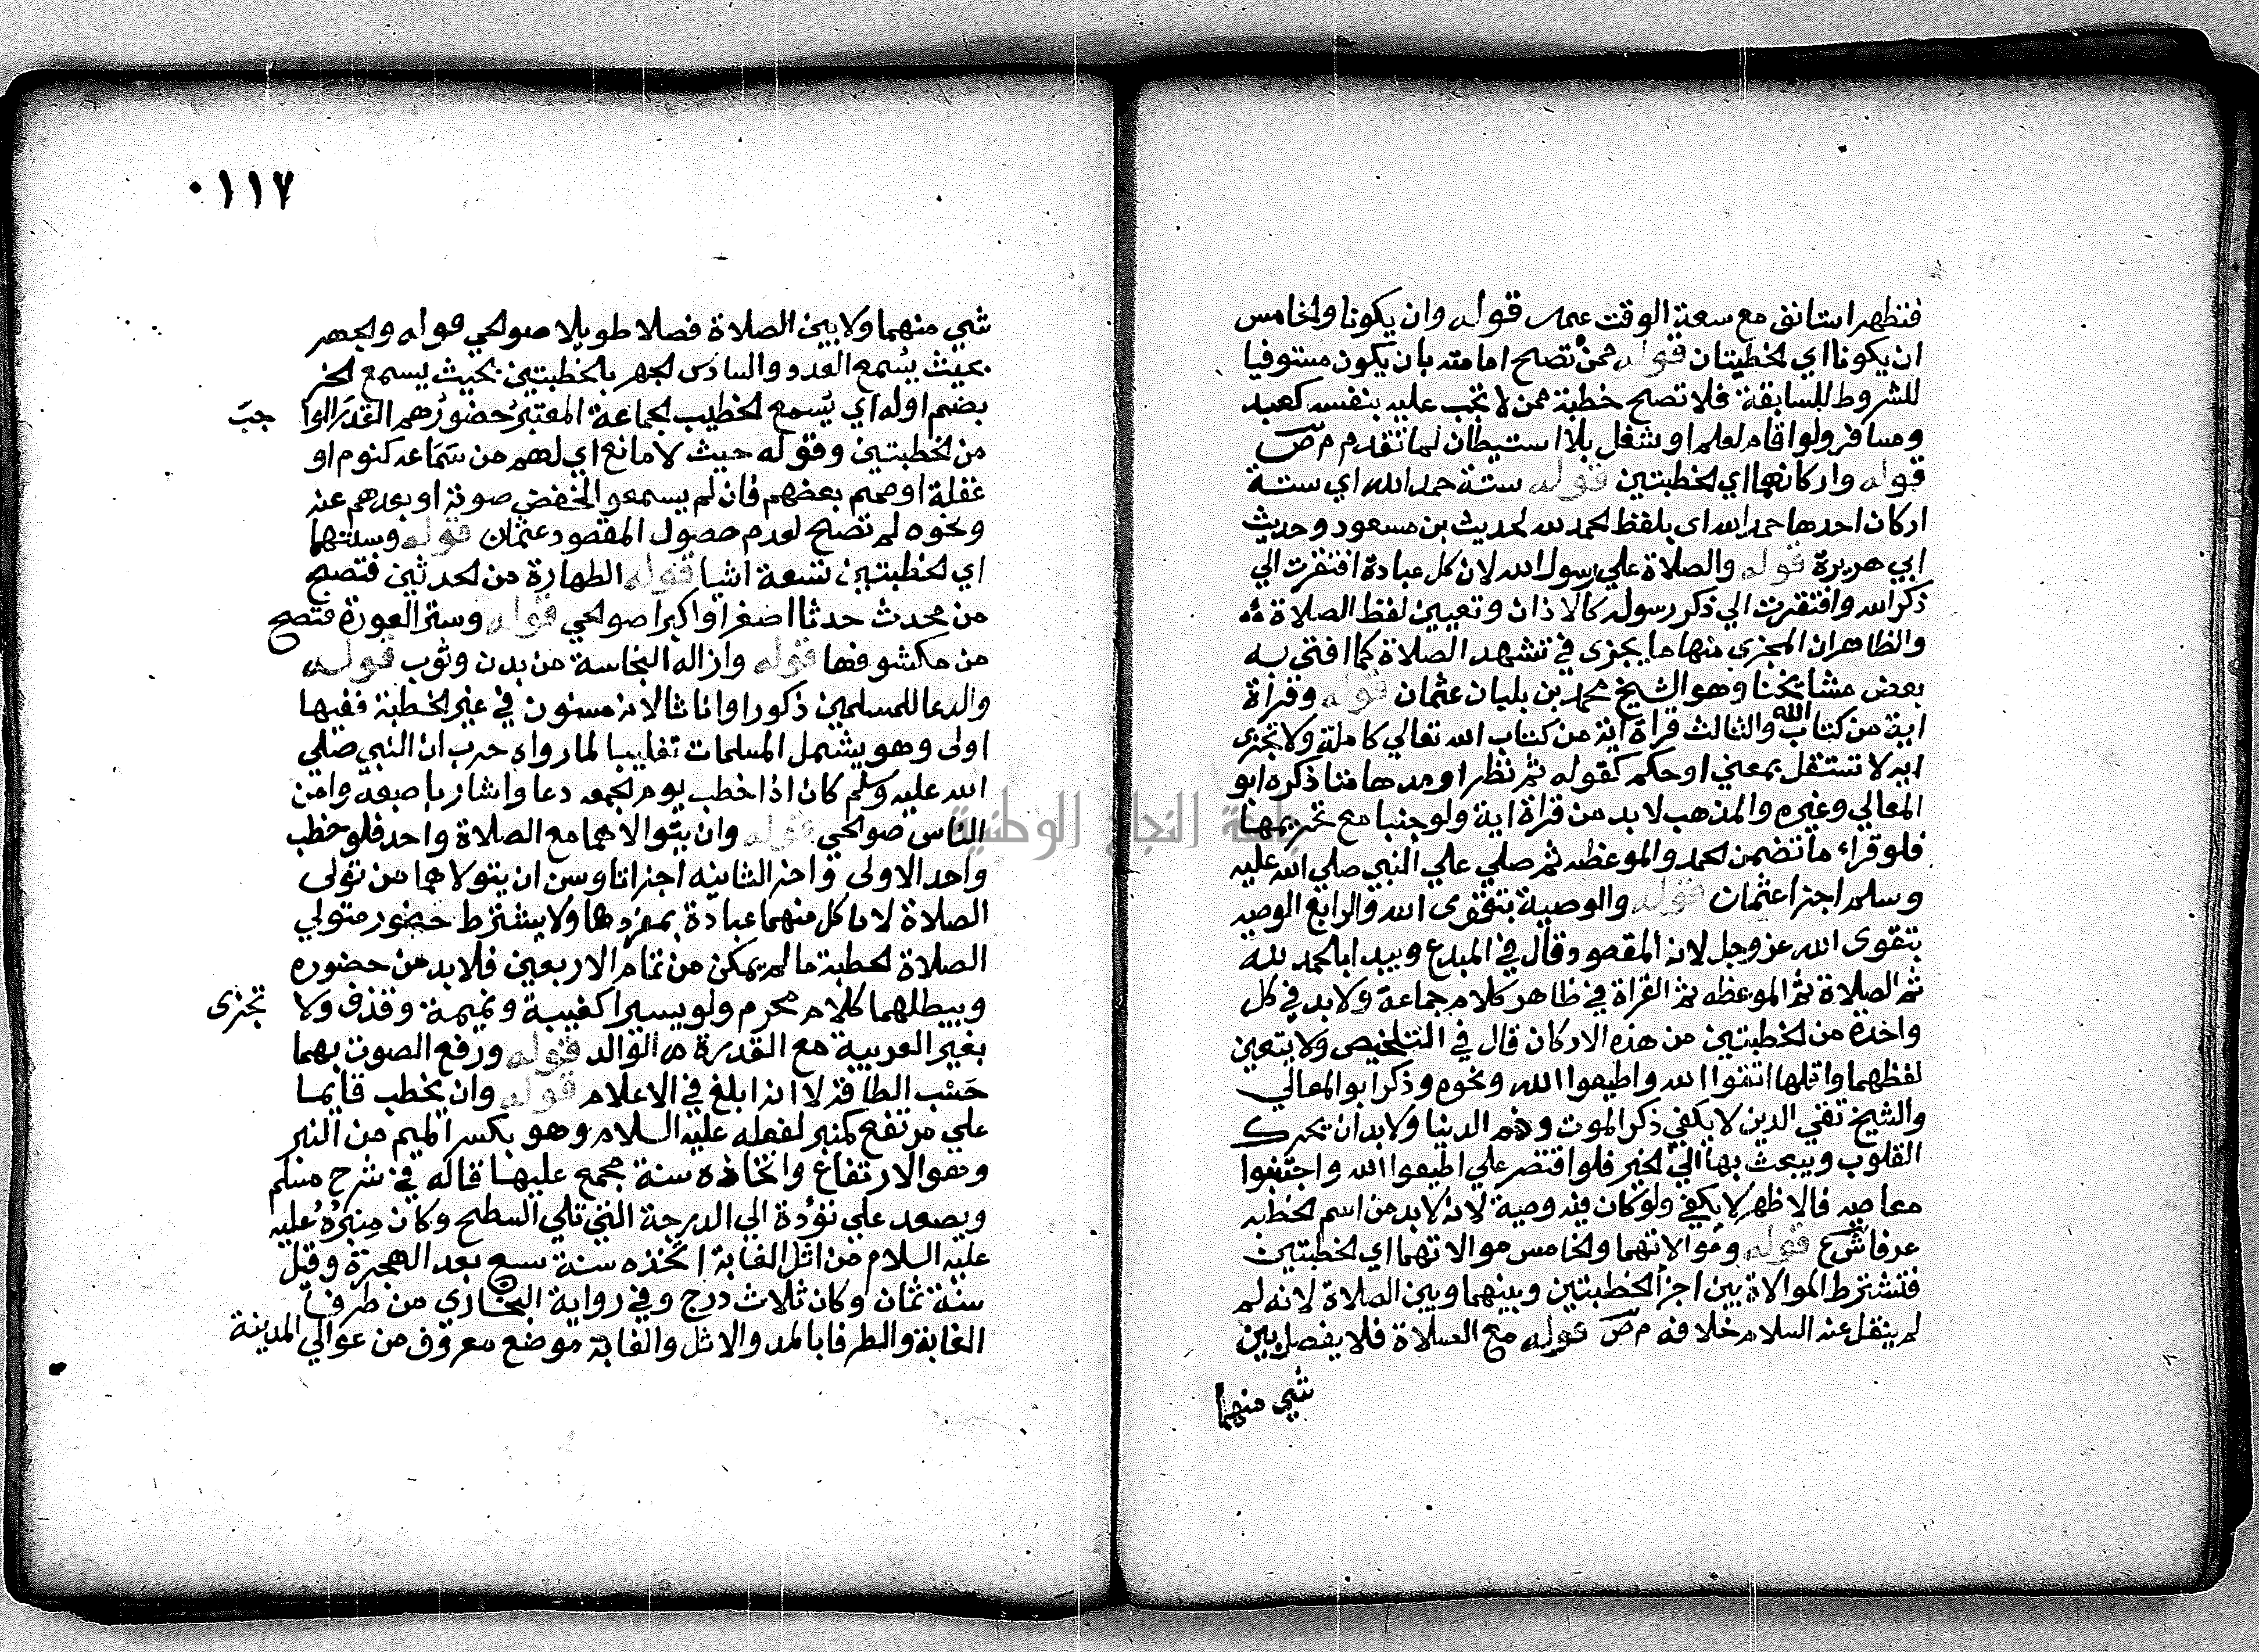 فتظهر استانق مع سعة الوقت عمر قوله وان يكونا والخامس
ان يكونا اي الخطبتان قوله ممن تصح امامته بان يكون مستوفيا
للشروط السابقة فلا تصح خطبة ممن لا تجب عليه بنفسه كعبد
ومسافر ولو اقام لعلم او شغل بلا استيطان لما تقدم م ص
قوله واركانهما اي الخطبتين قوله ستة حمد الله اي ستة
اركان احدها حمد الله اي بلفظ الحمد لله لحديث بن مسعود وحديث
ابي هريرة قوله والصلاة علي رسول الله لان كل عبادة افتقرت الي
ذكر الله وافتقرت الي ذكر رسوله كالاذان وتعيين لفظ الصلاة
والظاهر ان المجزي منها ما يجزى في تشهد الصلاة كما افتي به
بعض مشايخنا وهو الشيخ محمد بن بلبان عثمان قوله وقراة
اية من كتاب الله والثالث قراة اية من كتاب الله تعالي كاملة ولا تجزى
ايه لا تستقل بمعني او حكم كقوله ثم نظر او مدهامتا ذكره ابو
المعالي وغيره والمذهب لا بد من قراة اية ولو جنبا مع تحريمها
فلو قراء ما تضمن الحمد والموعظه ثم صلي علي النبي صلي الله عليه
وسلم اجزا عثمان قوله والوصية بتقوى الله والرابع الوصيه
بتقوى الله عز وجل لانه المقصود وقال في المبدع ويبدا بالحمد لله
ثم الصلاة ثم الموعظه ثم القراة في ظاهر كلام جماعة ولا بد في كل
واحدة من الخطبتين من هذه الاركان قال في التلخيص ولا يتعين
لفظهما واقلها اتقوا الله واطيعوا الله ونحوه وذكر ابو المعالي
والشيخ تقي الدين لا يكفي ذكر الموت وذم الدنيا ولا بد ان يحرك
القلوب ويبعث بها الي الخير فلو اقتصر علي اطيعوا الله واجتنبوا
معاصيه فالاظهر لا يكفي ولو كان فيه وصية لانه لا بد من اسم الخطبه
عرفا ش ع قوله وموالاتهما والخامس موالاتهما اي الخطبتين
فتشترط الموالاة بين اجزا الخطبتين وبينهما وبين الصلاة لانه لم
لم ينقل عنه السلام خلافه م ص قوله مع الصلاة فلا يفصل بين
شي منهما
٠١١٧
شي منهما ولا بين الصلاة فصلا طويلا صوالحي قوله والجهر
بحيث يسمع العدد والسادس الجهر بالخطبتين بحيث يسمع الخ
بضم اوله اي يسمع الخطيب الجماعة المعتبر حضورهم القدر الواجب
من الخطبتين وقوله حيث لا مانع اي لهم من سماعه كنوم او
غفلة او صمم بعضهم فان لم يسمعوا لخفض صوته او بعدهم عنه
ونحوه لم تصح لعدم حصول المقصود عثمان قوله وسننهما
اي الخطبتين تسعة اشيا قوله الطهارة من الحدثين فتصح
من محدث حدثا اصغرا واكبرا صوالحي قوله وستر العورة فتصح
من مكشوفها قوله وازاله النجاسة من بدن وثوب قوله
والدعا للمسلمين ذكورا واناثا لانه مسنون في غير الخطبة ففيها
اولى وهو يشمل المسلمات تغليبا لما رواه حرب ان النبي صلي
الله عليه وسلم كان اذا خطب يوم الجمعه دعا واشار باصبعه وامن
الناس صوالحي قوله وان يتوالاهما مع الصلاة واحد فلو خطب
واحد الاولى واخر الثانيه اجزاتا وسن ان يتولاهما من تولى
الصلاة لان كل منهما عبادة بمفردها ولا يشترط حضور متولي
الصلاة الخطبة ما لم يمكن من تمام الاربعين فلا بد من حضوره
ويبطلهما كلام محرم ولو يسيرا كغيبة ونميمة وقذف ولا تجزى
بغير العربية مع القدرة م الوالد قوله ورفع الصوت بهما
حسب الطاقة لانه ابلغ في الاعلام قوله وان يخطب قايما
علي مرتفع كمنبر لفعله عليه السلام وهو بكسر الميم من النبر
وهو الارتفاع واتخاذه سنة مجمع عليها قاله في شرح مسلم
ويصعد علي تؤدة الي الدرجة التي تلي السطح وكان منبره عليه
عليه السلام من اثل الغابة اتخذه سنة سبع بعد الهجرة وقيل
سنة ثمان وكان ثلاث درج وفي رواية البخاري من طرفا
الغابة والطرفا بالمد والاثل والغابة موضع معروف من عوالي المدينة